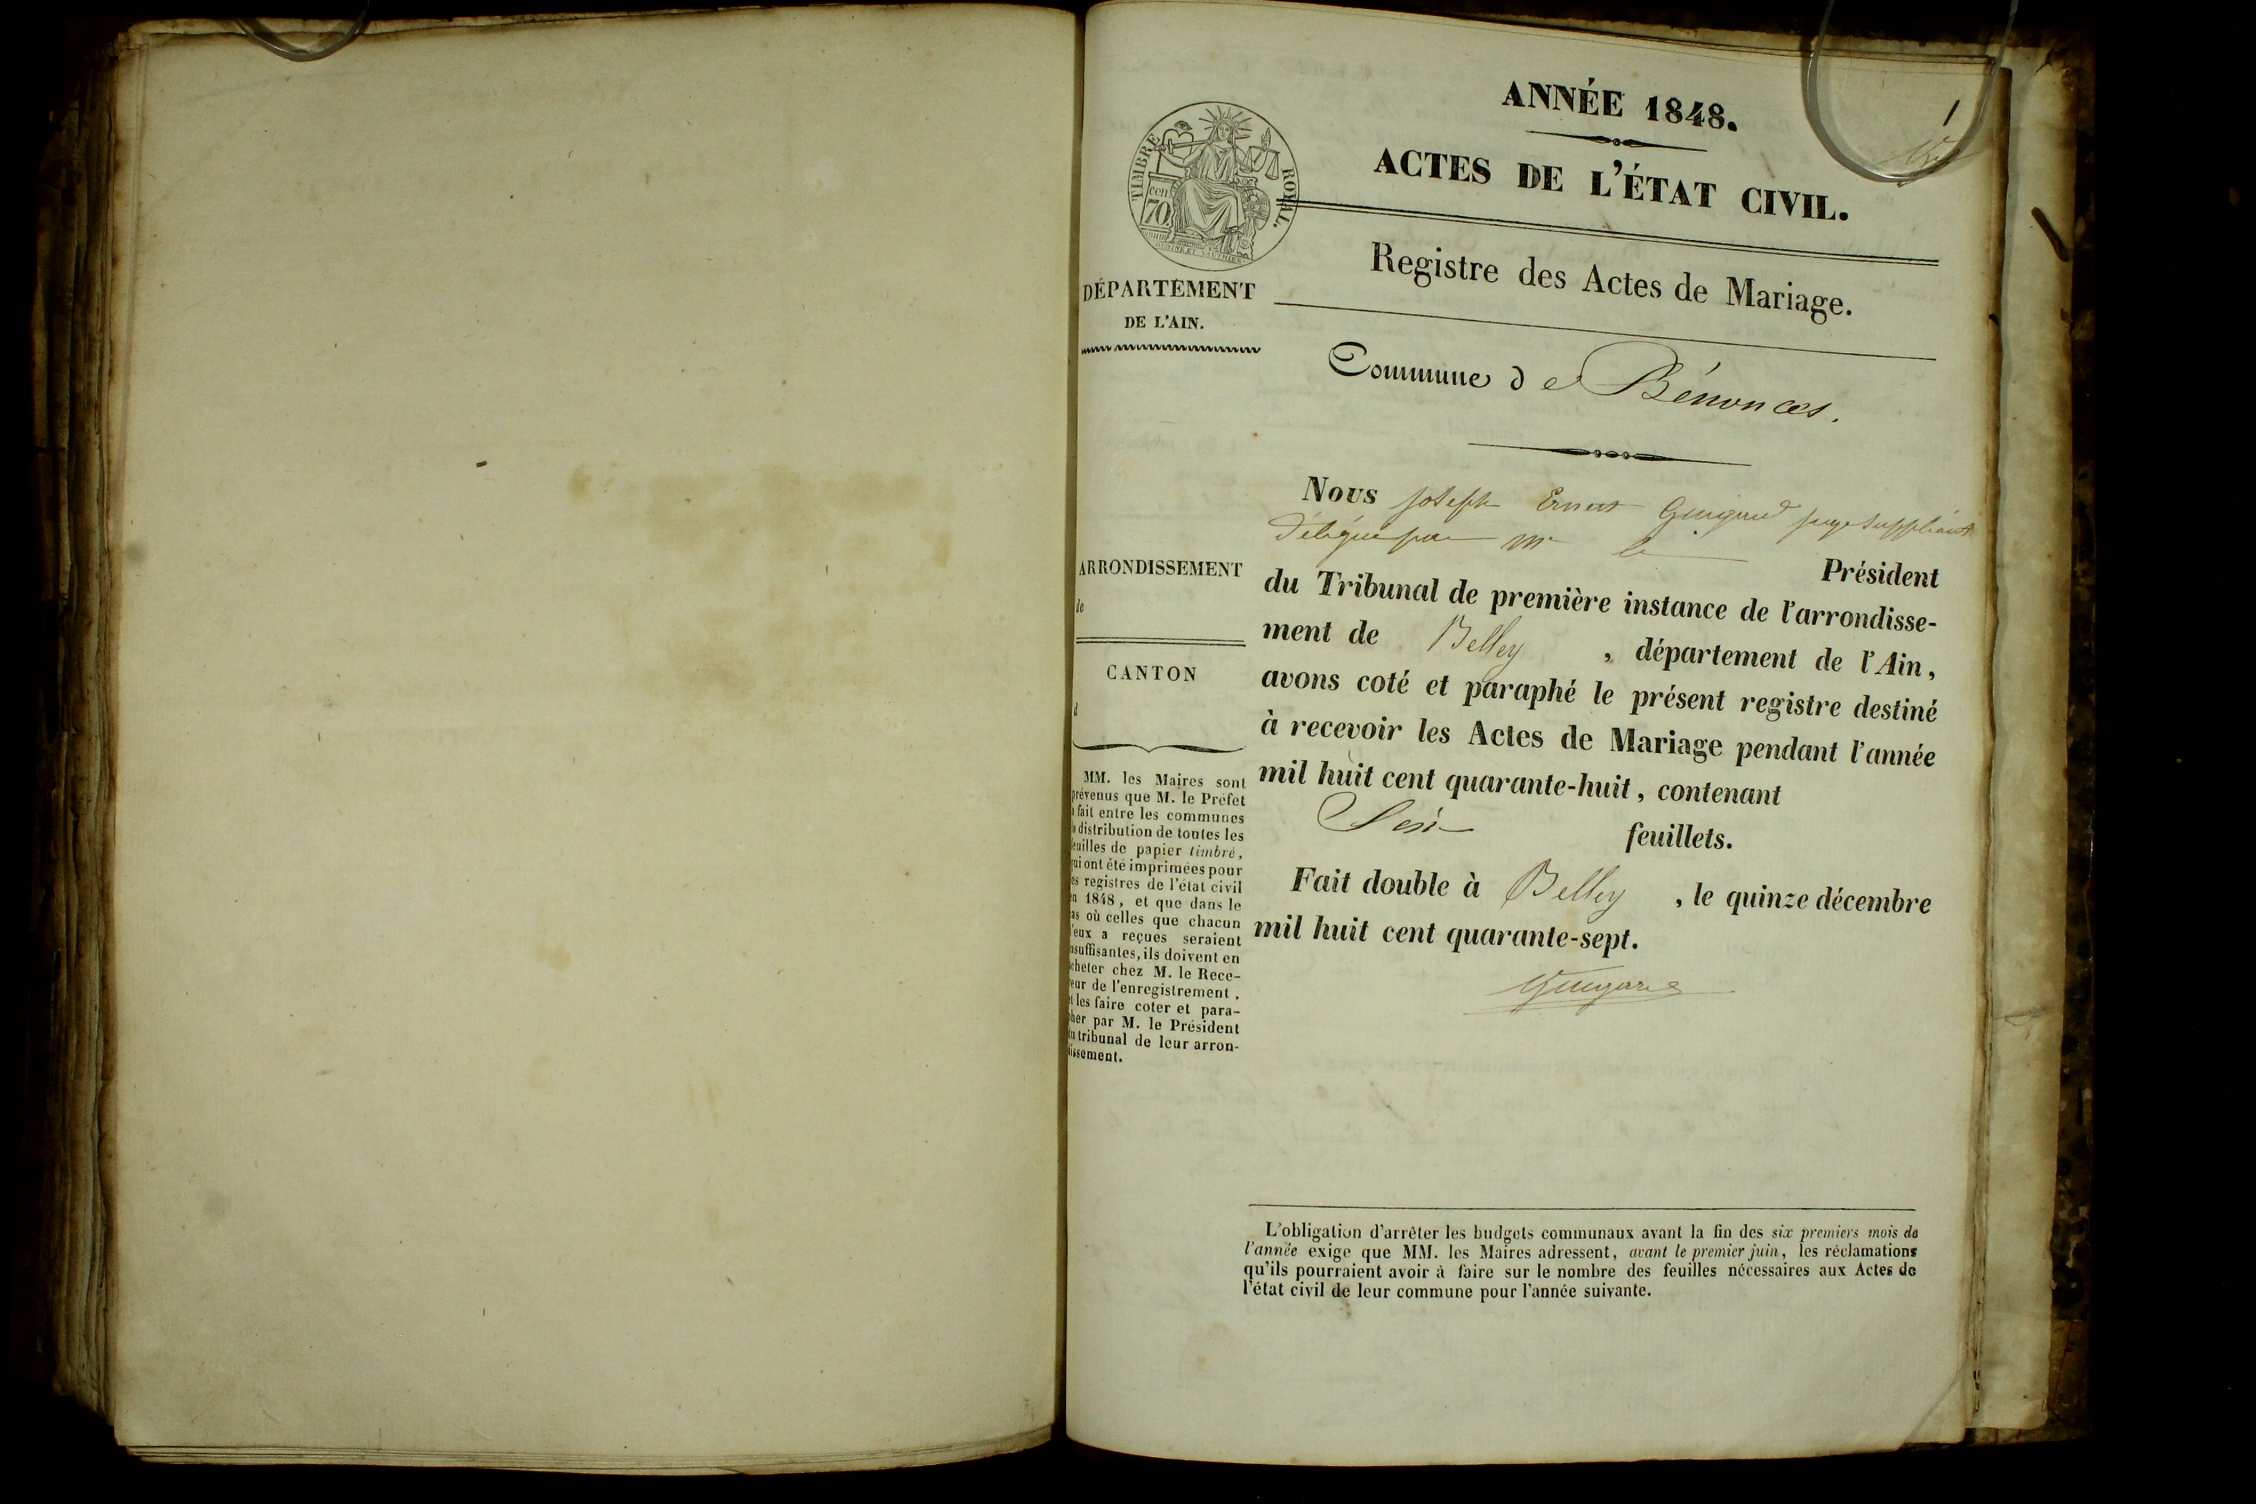 ANNÉE 1848.
1
ACTES DE L'ÉTAT CIVIL.
TIMBRE ROYAL.
cen
70
Registre des Actes de Mariage.
DÉPARTEMENT
DE L'AIN.
Commune de Bénonces.
Nous Joseph Ernest Guigard juge suppléant
délégué par Mr le Président
du Tribunal de première instance de l'arrondisse-
ment de Belley, département de l'Ain,
avons coté et paraphé le présent registre destiné
à recevoir les Actes de Mariage pendant l'année
mil huit cent quarante-huit, contenant
feuillets.
Fait double à Belley, le quinze décembre
mil huit cent quarante-sept.
Guigard
ARRONDISSEMENT
de
CANTON
d
MM. les Maires sont
prévenus que M. le Préfet
a fait entre les communes
la distribution de toutes les
feuilles de papier timbré,
qui ont été imprimées pour
les registres de l'état civil
en 1848, et que dans le
cas où celles que chacun
d'eux a reçues seraient
insuffisantes, ils doivent en
acheter chez M. le Rece-
veur de l'enregistrement,
et les faire coter et para-
pher par M. le Président
du tribunal de leur arron-
dissement.
L'obligation d'arrêter les budgets communaux avant la fin des six premiers mois de
l'année exige que MM. les Maires adressent, avant le premier juin, les réclamations
qu'ils pourraient avoir à faire sur le nombre des feuilles nécessaires aux Actes de
l'état civil de leur commune pour l'année suivante.